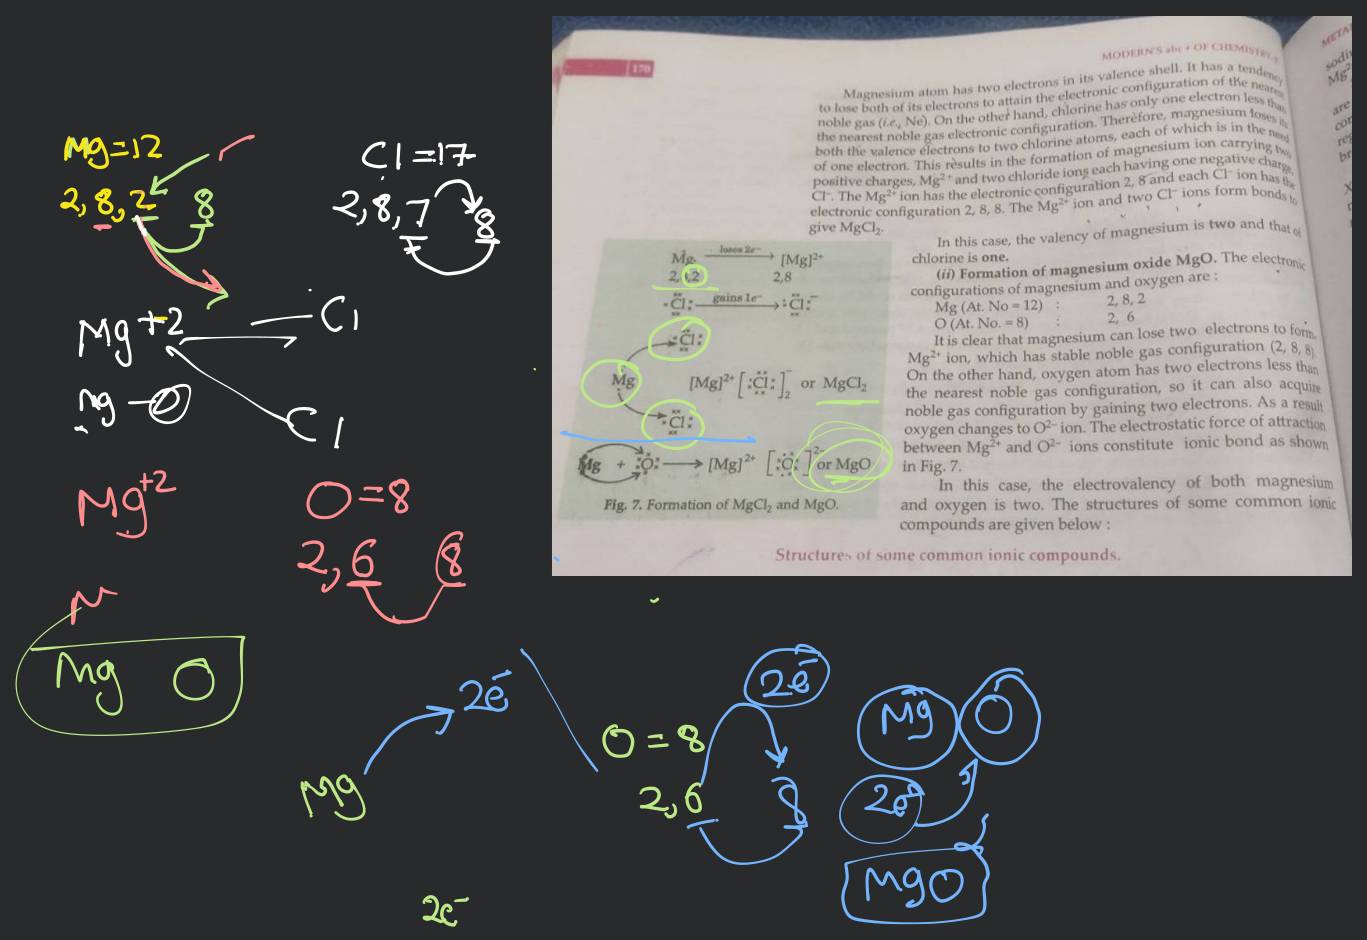 Mg=12
2, 8, 2 8
Cl =17
2,8,7 8
Mg +2 Cl
Mg - O
Cl
Mg+2
O=8
2,6 8
M
Mg O
170
MODERN'S abc + OF CHEMISTRY
Magnesium atom has two electrons in its valence shell. It has a tendency
to lose both of its electrons to attain the electronic configuration of the nearest
noble gas (i.e., Ne). On the other hand, chlorine has only one electron less than
the nearest noble gas electronic configuration. Therefore, magnesium loses its
both the valence electrons to two chlorine atoms, each of which is in the need
of one electron. This results in the formation of magnesium ion carrying two
positive charges, Mg2+ and two chloride ions each having one negative charge,
Cl–. The Mg2+ ion has the electronic configuration 2, 8 and each Cl– ion has the
electronic configuration 2, 8, 8. The Mg2+ ion and two Cl– ions form bonds to
give MgCl2.
In this case, the valency of magnesium is two and that of
chlorine is one.
(ii) Formation of magnesium oxide MgO. The electronic
configurations of magnesium and oxygen are :
Mg (At. No = 12) : 2, 8, 2
O (At. No. = 8) : 2, 6
It is clear that magnesium can lose two electrons to form
Mg2+ ion, which has stable noble gas configuration (2, 8, 8).
On the other hand, oxygen atom has two electrons less than
the nearest noble gas configuration, so it can also acquire
noble gas configuration by gaining two electrons. As a result
oxygen changes to O2– ion. The electrostatic force of attraction
between Mg2+ and O2– ions constitute ionic bond as shown
in Fig. 7.
In this case, the electrovalency of both magnesium
and oxygen is two. The structures of some common ionic
compounds are given below :
Mg loses 2e– [Mg]2+
2, 2 2,8
Cl gains 1e– Cl–
Cl
Mg [Mg]2+ [Cl]2– or MgCl2
Cl
Mg + O [Mg]2+ [O]2– or MgO
Fig. 7. Formation of MgCl2 and MgO.
Structures of some common ionic compounds.
META
sodi
Mg2
are
Mg 2e–
O = 8
2,6 8
2e–
Mg O
2e–
MgO
2e–